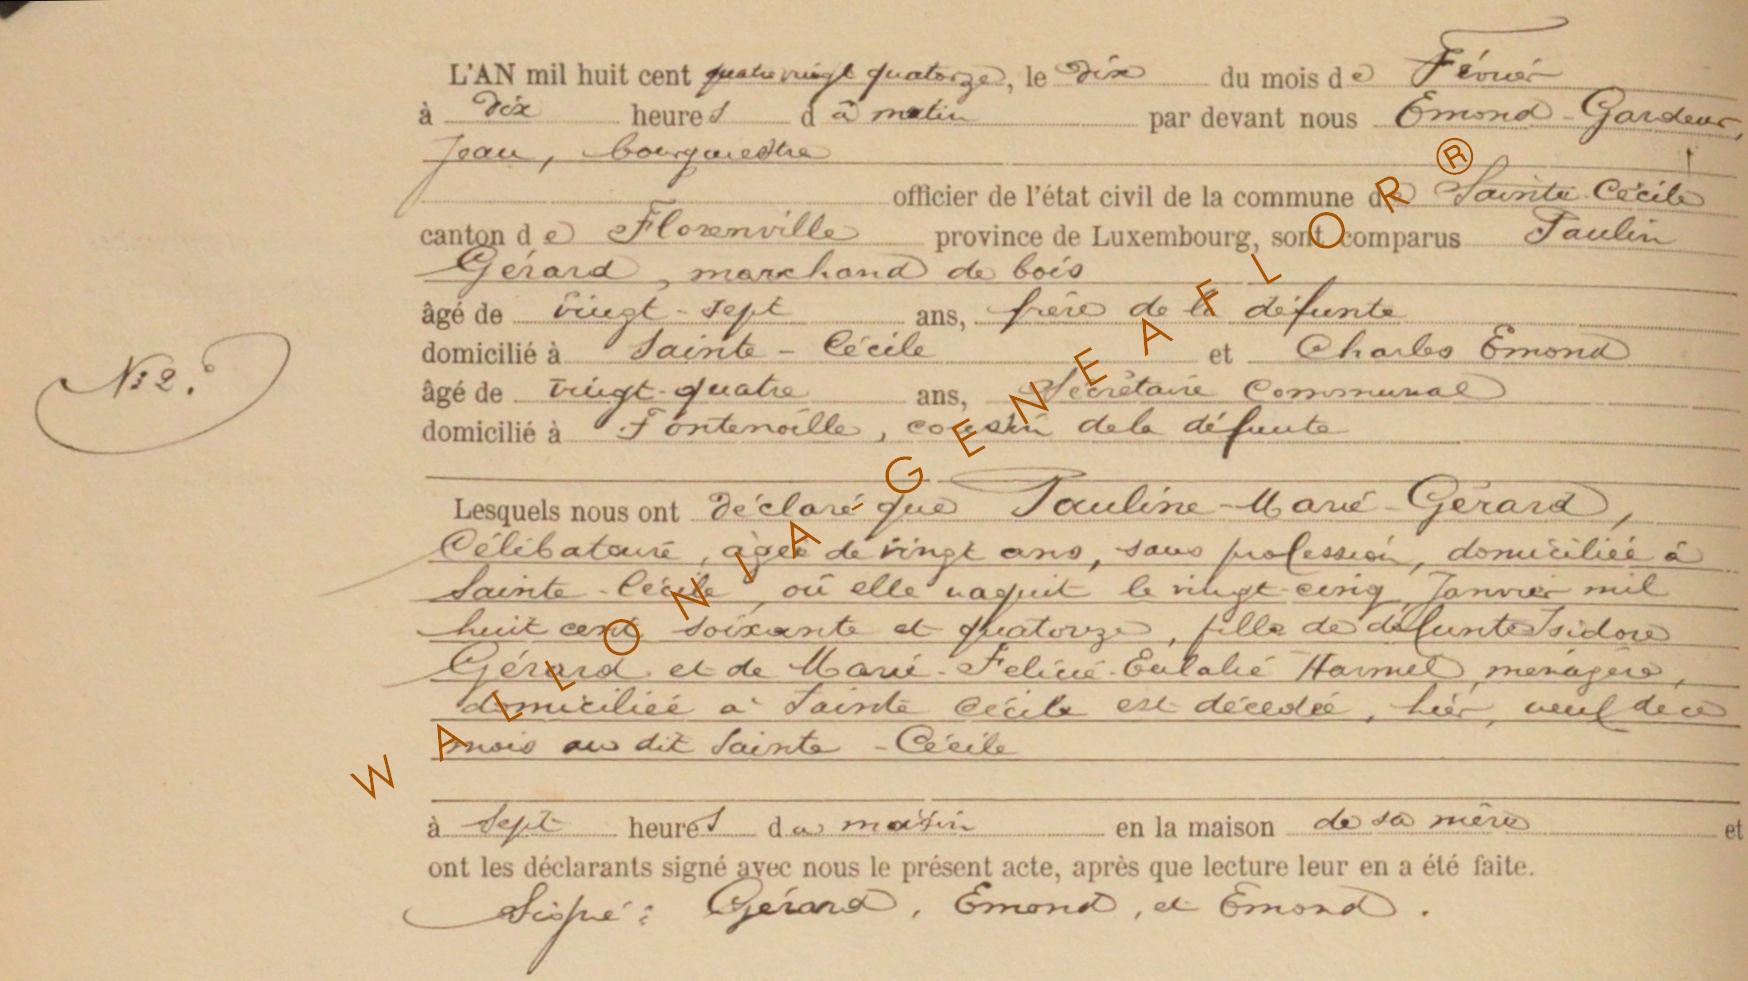 L'AN mil huit cent quatre vingt quatorze, le dix du mois de Février
à dix heures du matin par devant nous Emond-Gardeur,
Jean, bourgmestre
officier de l'état civil de la commune de Sainte-Cécile
canton de Florenville province de Luxembourg, sont comparus Paulin
Gérard, marchand de bois
âgé de vingt-sept ans, frère de la défunte
domicilié à Sainte-Cécile et Charles Emond
N° 2.
âgé de vingt-quatre ans, Secrétaire Communal
domicilié à Fontenoille, cousin de la défunte
Lesquels nous ont déclaré que Pauline-Marie-Gérard,
Célibataire, âgée de vingt ans, sans profession, domiciliée à
Sainte-Cécile, où elle naquit le vingt-cinq Janvier mil
huit cent soixante et quatorze, fille de défunt Isidore
Gérard et de Marie-Felicie-Eulalie Harmel, ménagère,
domiciliée à Sainte Cécile est décédée, hier, neuf de ce
mois au dit Sainte-Cécile
à sept heures du matin en la maison de sa mère et
ont les déclarants signé avec nous le présent acte, après que lecture leur en a été faite.
Signé: Gérard, Emond, et Emond.
WALLONIA-GENEAFLOR®